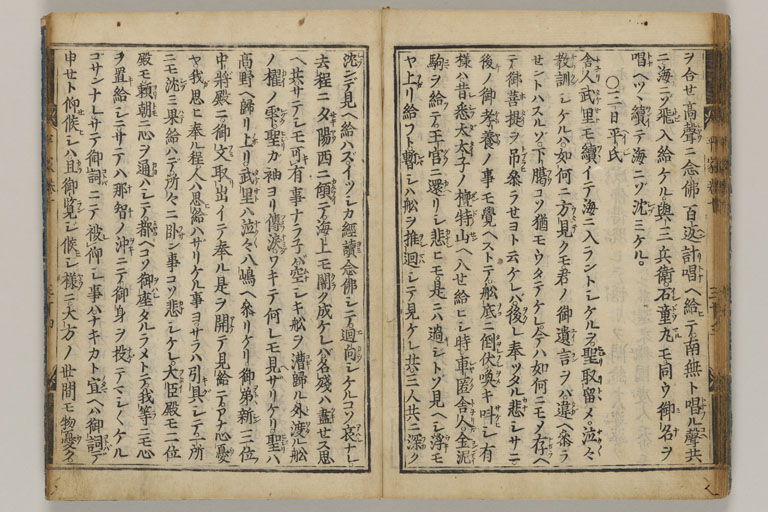 ヲ合セ高聲ニ念佛百返計唱ヘ給テ南無ト唱ル聲共
ニ海ニゾ飛入給ケル與三兵衛石童丸モ同ク御名ヲ
唱ヘツヽ續テ海ニゾ沈ミケル。
〇三日平氏
舎人武里モ續イテ海ニ入ラントシケルヲ聖取留メ。泣々
教訓シケルハ如何ニ方見クモ君ノ御遺言ヲバ違ヘ參ラ
セントハスルソ。下﨟コソ猶モウタテケレ今ハ如何ニモメ存ヘ
テ御菩提ヲ吊參ラセヨト云ケレバ後レ奉ツタル悲シサニ
後ノ御孝養ノ事モ覺ヘズトテ舩底ニ倒伏喚キ叫シ有
様ハ昔悉太太子ノ檀特山ヘ入セ給ヒシ時車匿舎人ガ金泥
駒ヲ給テ王宮ニ還リシ悲ヒモ。是ニハ過シトゾ見ヘシ浮モ
ヤ上リ給フト暫シハ舩ヲ推廻シテ見ケレ共三人共ニ深ク
沈ンデ見ヘ給ハズイツシカ經讀念佛シテ廻向シケルコソ哀ナレ
去程ニ夕陽西ニ傾テ海上モ闇ク成ケレバ名殘ハ盡セズ思
ヘ共サテシモ可有事ナラ子バ空シキ舩ヲ漕歸ル外渡ル舩
ノ櫂ノ雫聖カ袖ヨリ傳涙ワキテ何レモ見サリケリ聖ハ
高野ヘ歸リ上リ武里ハ泣々八嶋ヘ參リケリ御弟新三位
中將殿ニ御文取出イテ奉ル是ヲ開テ見給テアナ心憂
ヤ我思ヒ奉ル程人ハ思給ハサリケル事ヨサラハ引具シテ一所
ニモ沈ミ果給ハテ所々ニ臥シ事コソ悲シケレ大臣殿モ二位
殿モ頼朝ニ心ヲ通ハシテ都ヘコソ御座タルラメトテ我等ニモ心
ヲ置給シニサテハ那智ノ沖ニテ御身ヲ投テマシ〱ケル
コサンナレサテ御詞ニテ被仰シ事ハナキカト宣ヘハ御詞テ
申セト仰候シハ且御覧シ候シ様ニ大方ノ世間モ物憂ク